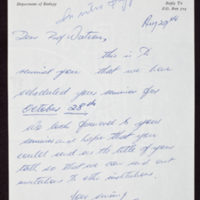 Department of Zoology
Reply To
P.O. Box 704
In vitro
Aug 29th
Dear Prof Watson,
This is to
remind you that we have
scheduled your seminar for
October 28th
We look forward to your
seminar and hope that you
could send us the title of your
talk so that we can send out
invitations to other institutions.